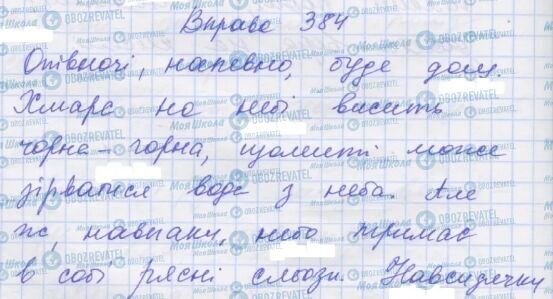 Вправа 384
Опівночі, напевно, буде дощ.
Хмара на небі висить
чорна-чорна, щомиті може
зірватися вода з неба. Але
ні, навпаки, небо тримає
в собі рясні сльози. Навсидячки